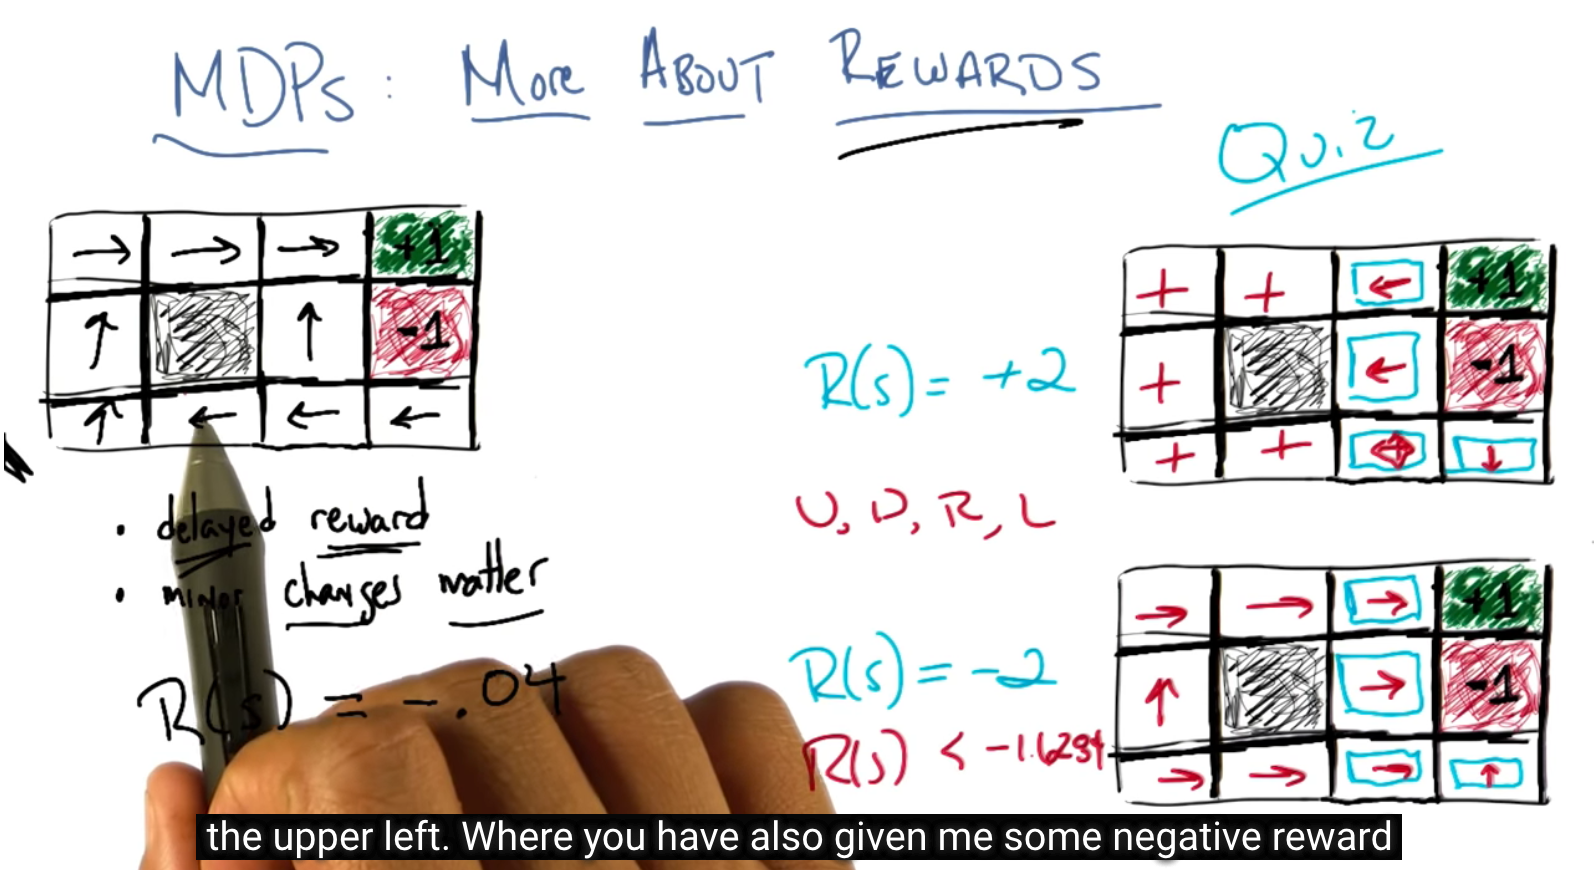 MDPs: More About Rewards
Quiz
→ → → +1
↑ ↑ -1
↑ ← ← ←
• delayed reward
• minor changes matter
R(s) = -.04
R(s) = +2
U, D, R, L
+ + ← +1
+ ← -1
+ + ↓
R(s) = -2
R(s) < -1.6284
→ → → +1
↑ → -1
→ → → ↑
the upper left. Where you have also given me some negative reward